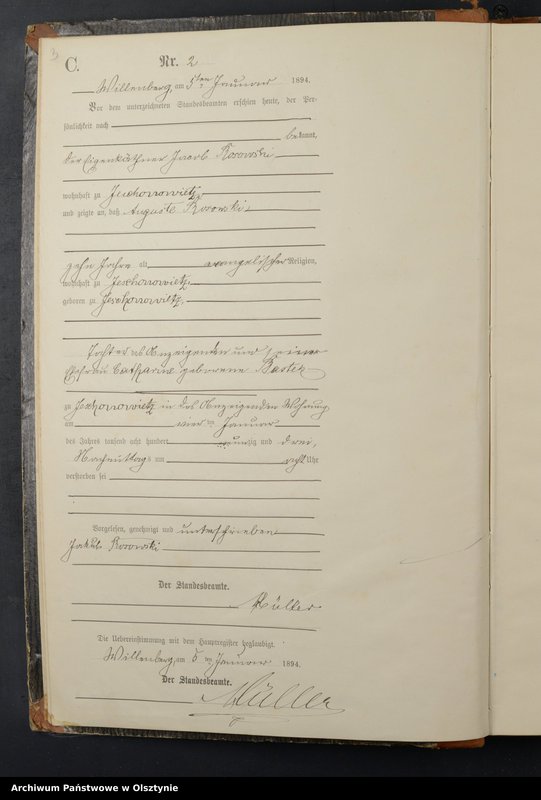 3
C.
Nr. 2
Willenberg, am 5ten Januar 1894.
Vor dem unterzeichneten Standesbeamten erschien heute, der Per-
sönlichkeit nach
bekannt,
der Eigenkäthner Jacob Rosowski
wohnhaft zu Jeschonowietz,
und zeigte an, daß Auguste Rosowski,
zehn Jahre alt, evangelischer Religion,
wohnhaft zu Jeschonowietz,
geboren zu Jeschonowietz,
Tochter des Anzeigenden und seiner
Ehefrau Catharine geborene
zu Jeschonowietz in des Anzeigenden Wohnung
am vier ten Januar
des Jahres tausend acht hundert neunzig und
Nachmittags um acht Uhr
verstorben sei
Vorgelesen, genehmigt und unterschrieben
Jakub Rosowski
Der Standesbeamte.
Müller
Die Uebereinstimmung mit dem Hauptregister beglaubigt.
Willenberg, am 5 ten Januar 1894.
Der Standesbeamte.
Müller
Archiwum Państwowe w Olsztynie